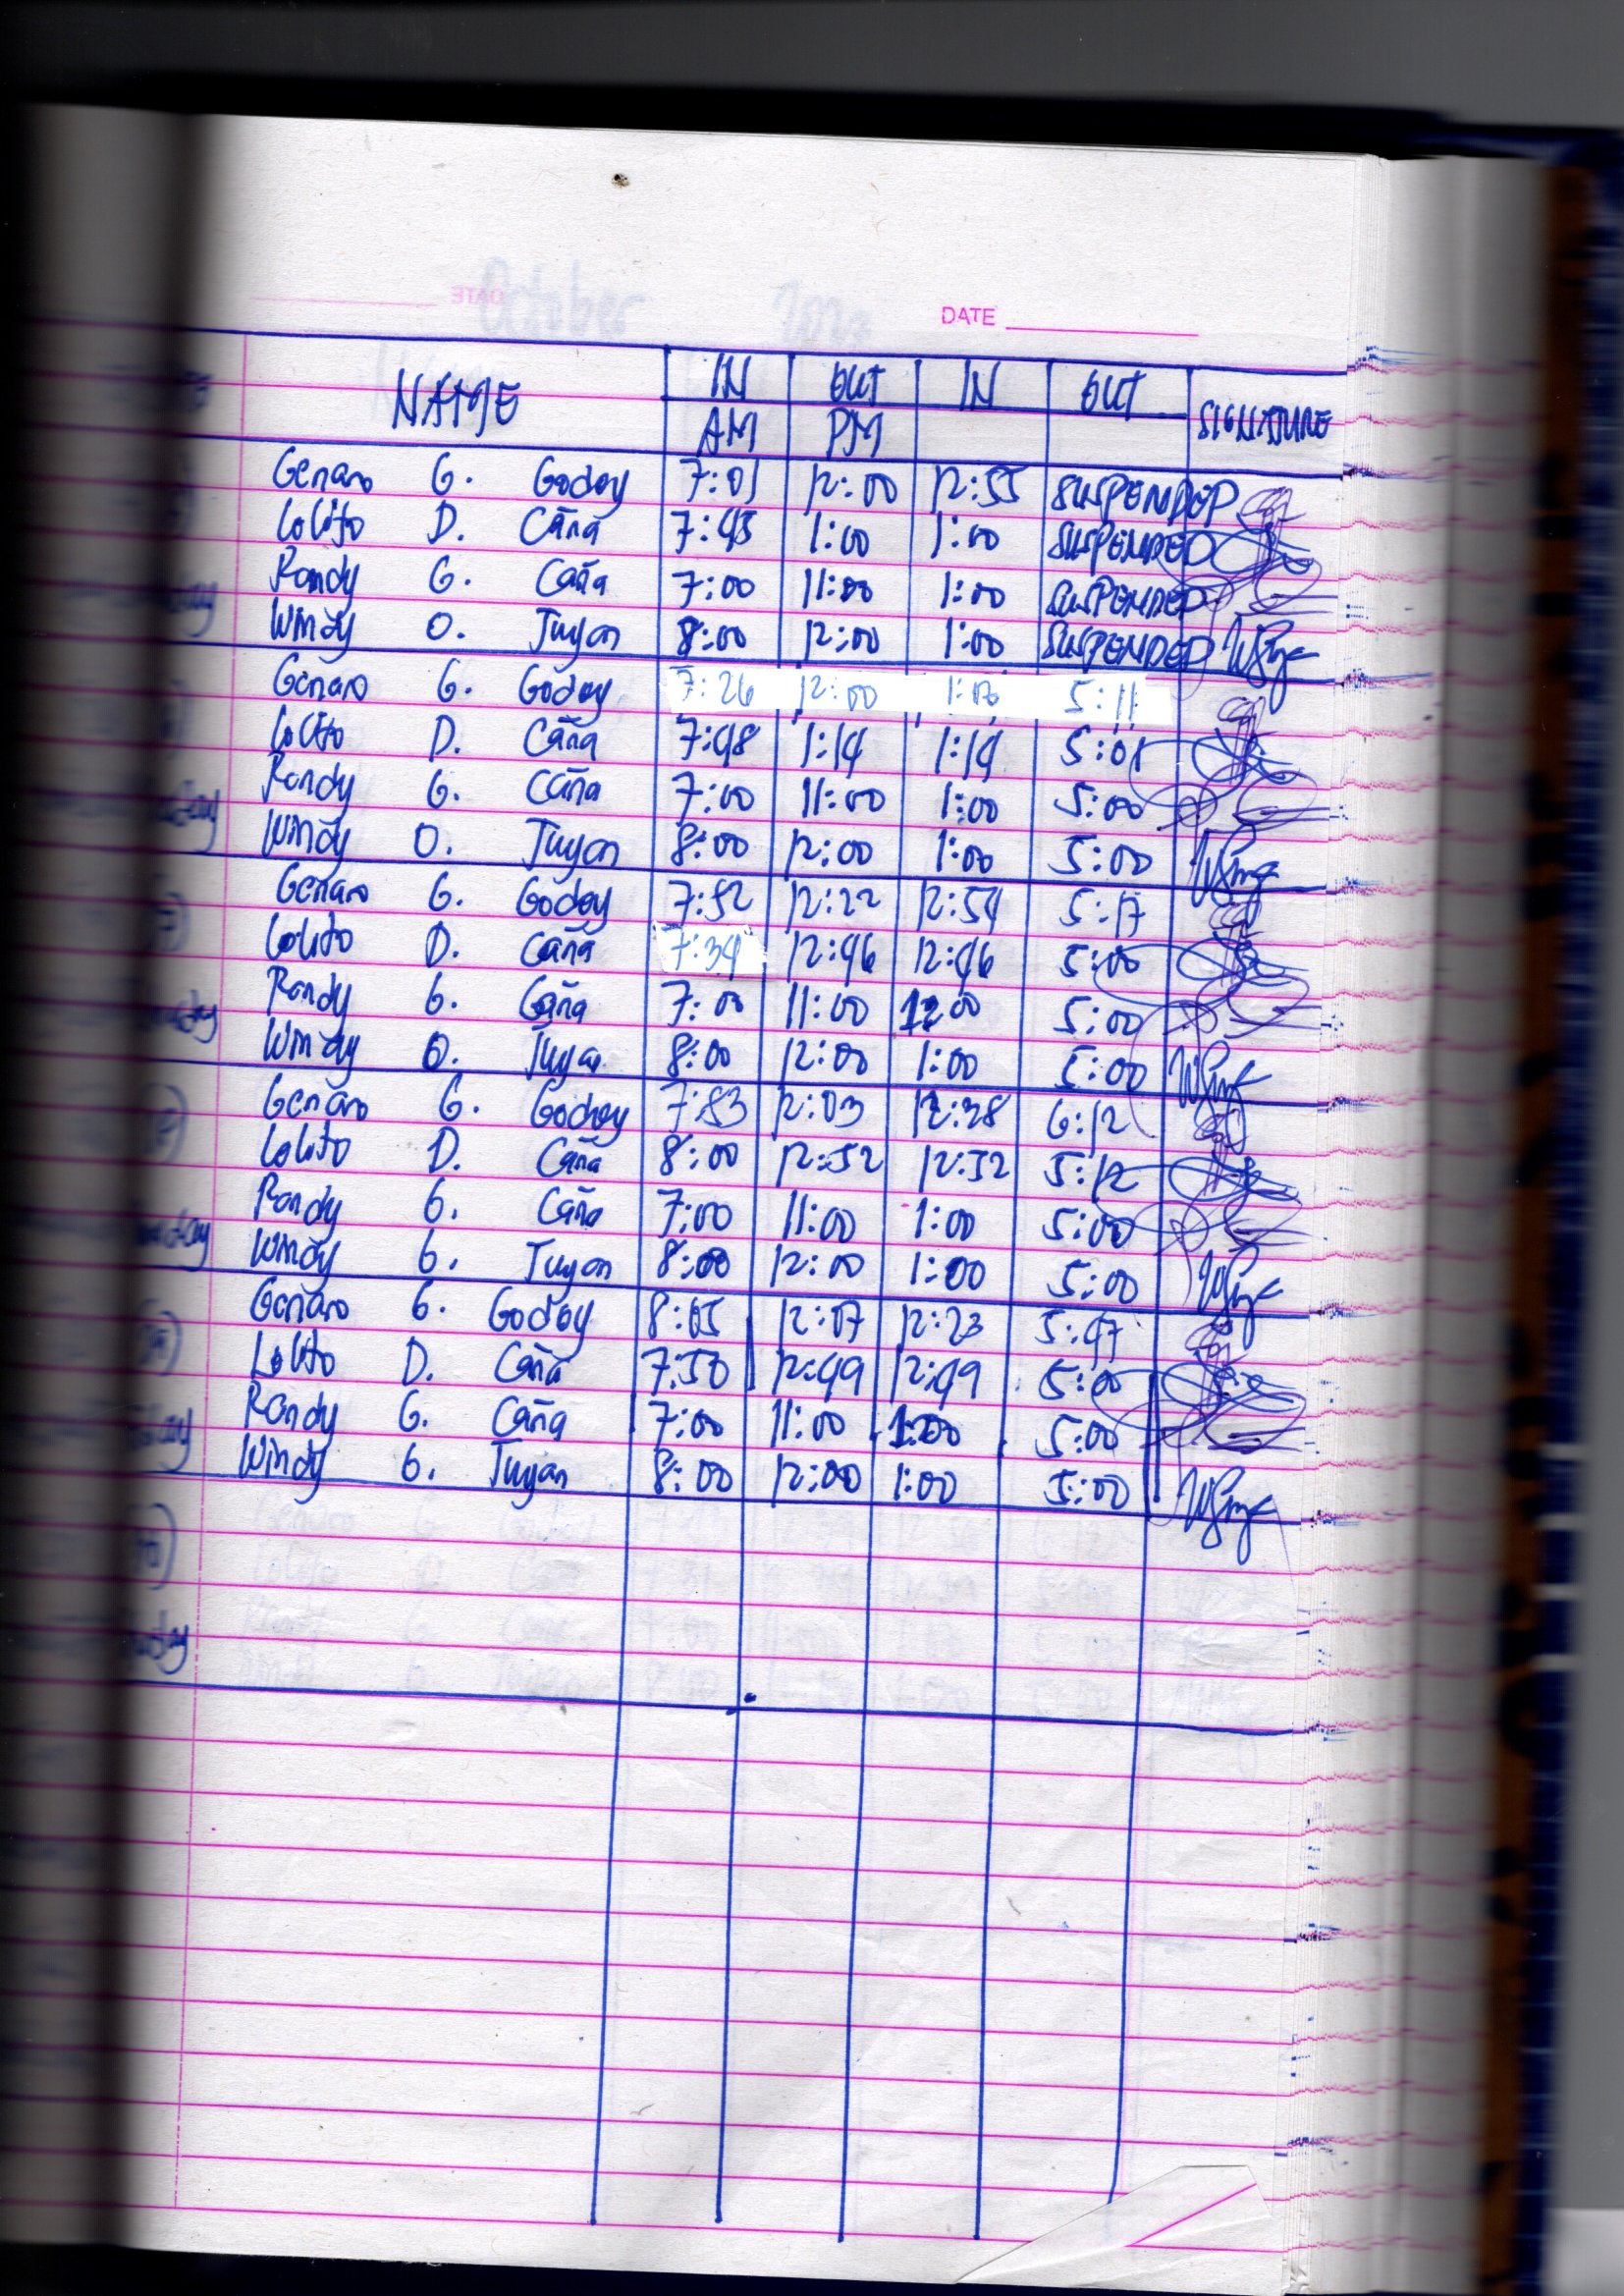 DATE
NAME IN OUT IN OUT SIGNATURE
AM PM
Genaro G. Godoy 7:01 12:00 12:55 SUSPENDED
Lolito D. Caña 7:45 1:00 1:00 SUSPENDED
Randy G. Caña 7:00 11:00 1:00 SUSPENDED
Windy O. Tuyan 8:00 12:00 1:00 SUSPENDED
Genaro G. Godoy 7:26 12:00 1:00 5:11
Lolito D. Caña 7:48 1:14 1:14 5:01
Randy G. Caña 7:00 11:00 1:00 5:00
Windy O. Tuyan 8:00 12:00 1:00 5:00
Genaro G. Godoy 7:52 12:22 12:54 5:17
Lolito D. Caña 7:34 12:46 12:46 5:00
Randy G. Caña 7:00 11:00 12:00 5:00
Windy O. Tuyan 8:00 12:00 1:00 5:00
Genaro G. Godoy 7:53 12:03 12:28 6:12
Lolito D. Caña 8:00 12:52 12:52 5:12
Randy G. Caña 7:00 11:00 1:00 5:00
Windy G. Tuyan 8:00 12:00 1:00 5:00
Genaro G. Godoy 8:05 12:07 12:23 5:47
Lolito D. Caña 7:50 12:49 12:49 5:00
Randy G. Caña 7:00 11:00 1:00 5:00
Windy G. Tuyan 8:00 12:00 1:00 5:00